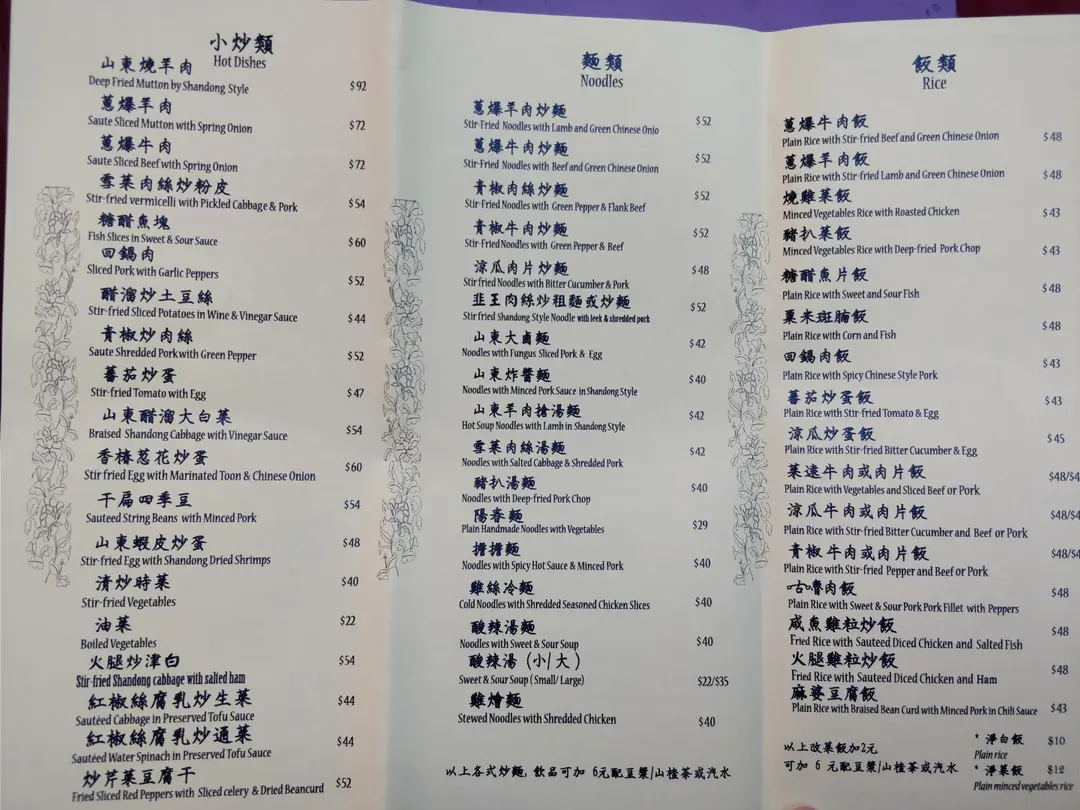 小炒類
Hot Dishes
山東燒羊肉
Deep Fried Mutton by Shandong Style $92
蔥爆羊肉
Saute Sliced Mutton with Spring Onion $72
蔥爆牛肉
Saute Sliced Beef with Spring Onion $72
雪菜肉絲炒粉皮
Stir-fried vermicelli with Pickled Cabbage & Pork $54
糖醋魚塊
Fish Slices in Sweet & Sour Sauce $60
回鍋肉
Sliced Pork with Garlic Peppers $52
醋溜炒土豆絲
Stir-fried Sliced Potatoes in Wine & Vinegar Sauce $44
青椒炒肉絲
Saute Shredded Pork with Green Pepper $52
蕃茄炒蛋
Stir-fried Tomato with Egg $47
山東醋溜大白菜
Braised Shandong Cabbage with Vinegar Sauce $54
香椿葱花炒蛋
Stir fried Egg with Marinated Toon & Chinese Onion $60
干扁四季豆
Sauteed String Beans with Minced Pork $54
山東蝦皮炒蛋
Stir-fried Egg with Shandong Dried Shrimps $48
清炒時菜
Stir-fried Vegetables $40
油菜
Boiled Vegetables $22
火腿炒津白
Stir-fried Shandong cabbage with salted ham $54
紅椒絲腐乳炒生菜
Sautéed Cabbage in Preserved Tofu Sauce $44
紅椒絲腐乳炒通菜
Sautéed Water Spinach in Preserved Tofu Sauce $44
炒芹菜豆腐干
Fried Sliced Red Peppers with Sliced celery & Dried Beancurd $52
麵類
Noodles
蔥爆羊肉炒麵
Stir-Fried Noodles with Lamb and Green Chinese Onio $52
蔥爆牛肉炒麵
Stir-Fried Noodles with Beef and Green Chinese Onion $52
青椒肉絲炒麵
Stir-Fried Noodles with Green Pepper & Flank Beef $52
青椒牛肉炒麵
Stir-Fried Noodles with Green Pepper & Beef $52
涼瓜肉片炒麵
Stir fried Noodles with Bitter Cucumber & Pork $48
韭王肉絲炒粗麵或炒麵
Stir fried Shandong Style Noodle with leek & shredded pork $52
山東大鹵麵
Noodles with Fungus Sliced Pork & Egg $42
山東炸醬麵
Noodles with Minced Pork Sauce in Shandong Style $40
山東羊肉搶湯麵
Hot Soup Noodles with Lamb in Shandong Style $42
雪菜肉絲湯麵
Noodles with Salted Cabbage & Shredded Pork $42
豬扒湯麵
Noodles with Deep-fried Pork Chop $40
陽春麵
Plain Handmade Noodles with Vegetables $29
擔擔麵
Noodles with Spicy Hot Sauce & Minced Pork $40
雞絲冷麵
Cold Noodles with Shredded Seasoned Chicken Slices $40
酸辣湯麵
Noodles with Sweet & Sour Soup $40
酸辣湯 (小/大)
Sweet & Sour Soup ( Small/ Large) $22/$35
雞燴麵
Stewed Noodles with Shredded Chicken $40
以上各式炒麵, 飲品可加 6元配豆漿/山楂茶或汽水
飯類
Rice
蔥爆牛肉飯
Plain Rice with Stir-fried Beef and Green Chinese Onion $48
蔥爆羊肉飯
Plain Rice with Stir-fried Lamb and Green Chinese Onion $48
燒雞菜飯
Minced Vegetables Rice with Roasted Chicken $43
豬扒菜飯
Minced Vegetables Rice with Deep-fried Pork Chop $43
糖醋魚片飯
Plain Rice with Sweet and Sour Fish $48
粟米斑腩飯
Plain Rice with Corn and Fish $48
回鍋肉飯
Plain Rice with Spicy Chinese Style Pork $43
蕃茄炒蛋飯
Plain Rice with Stir-fried Tomato & Egg $43
涼瓜炒蛋飯
Plain Rice with Stir-fried Bitter Cucumber & Egg $45
菜遠牛肉或肉片飯
Plain Rice with Vegetables and Sliced Beef or Pork $48/$4
涼瓜牛肉或肉片飯
Plain Rice with Stir-fried Bitter Cucumber and Beef or Pork $48/$4
青椒牛肉或肉片飯
Plain Rice with Stir-fried Pepper and Beef or Pork $48/$4
咕嚕肉飯
Plain Rice with Sweet & Sour Pork Pork Fillet with Peppers $48
咸魚雞粒炒飯
Fried Rice with Sauteed Diced Chicken and Salted Fish $48
火腿雞粒炒飯
Fried Rice with Sauteed Diced Chicken and Ham $48
麻婆豆腐飯
Plain Rice with Braised Bean Curd with Minced Pork in Chili Sauce $43
以上改菜飯加2元
可加 6 元配豆漿/山楂茶或汽水
* 淨白飯 $10
Plain rice
* 淨菜飯 $12
Plain minced vegetables rice